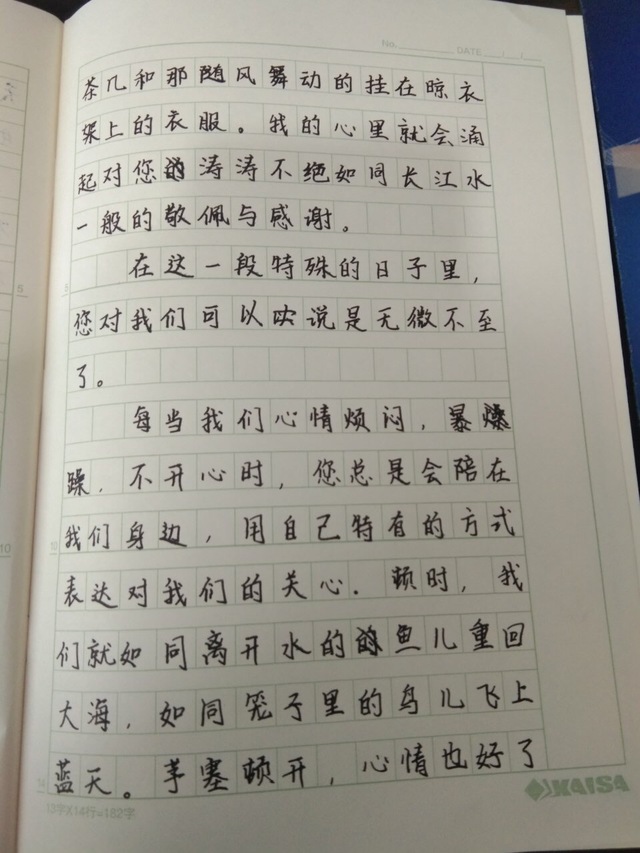 No. DATE / /
茶几和那随风舞动的挂在晾衣
架上的衣服。我的心里就会涌
起对您的涛涛不绝如同长江水
一般的敬佩与感谢。
在这一段特殊的日子里，
您对我们可以说是无微不至
了。
每当我们心情烦闷，暴
躁，不开心时，您总是会陪在
我们身边，用自己特有的方式
表达对我们的关心. 顿时，我
们就如同离开水的鱼儿重回
大海，如同笼子里的鸟儿飞上
蓝天。茅塞顿开，心情也好了
5
5
10
10
14
13字X14行=182字
KAISA